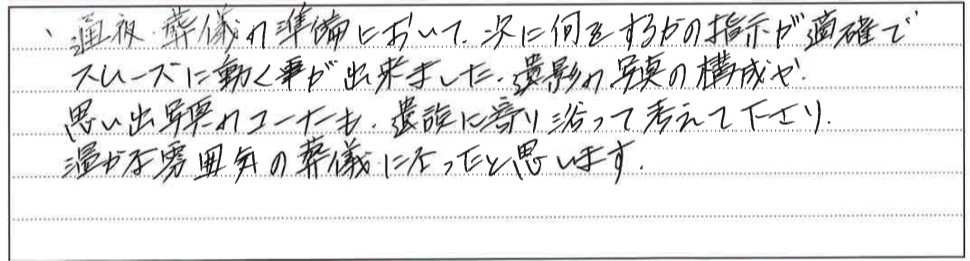 、通夜・葬儀の準備において、次に何をするかの指示が適確で
スムーズに動く事が出来ました。遺影の写真の構成や、
思い出写真のコーナーも、遺族に寄り沿って考えて下さり、
温かな雰囲気の葬儀になったと思います。